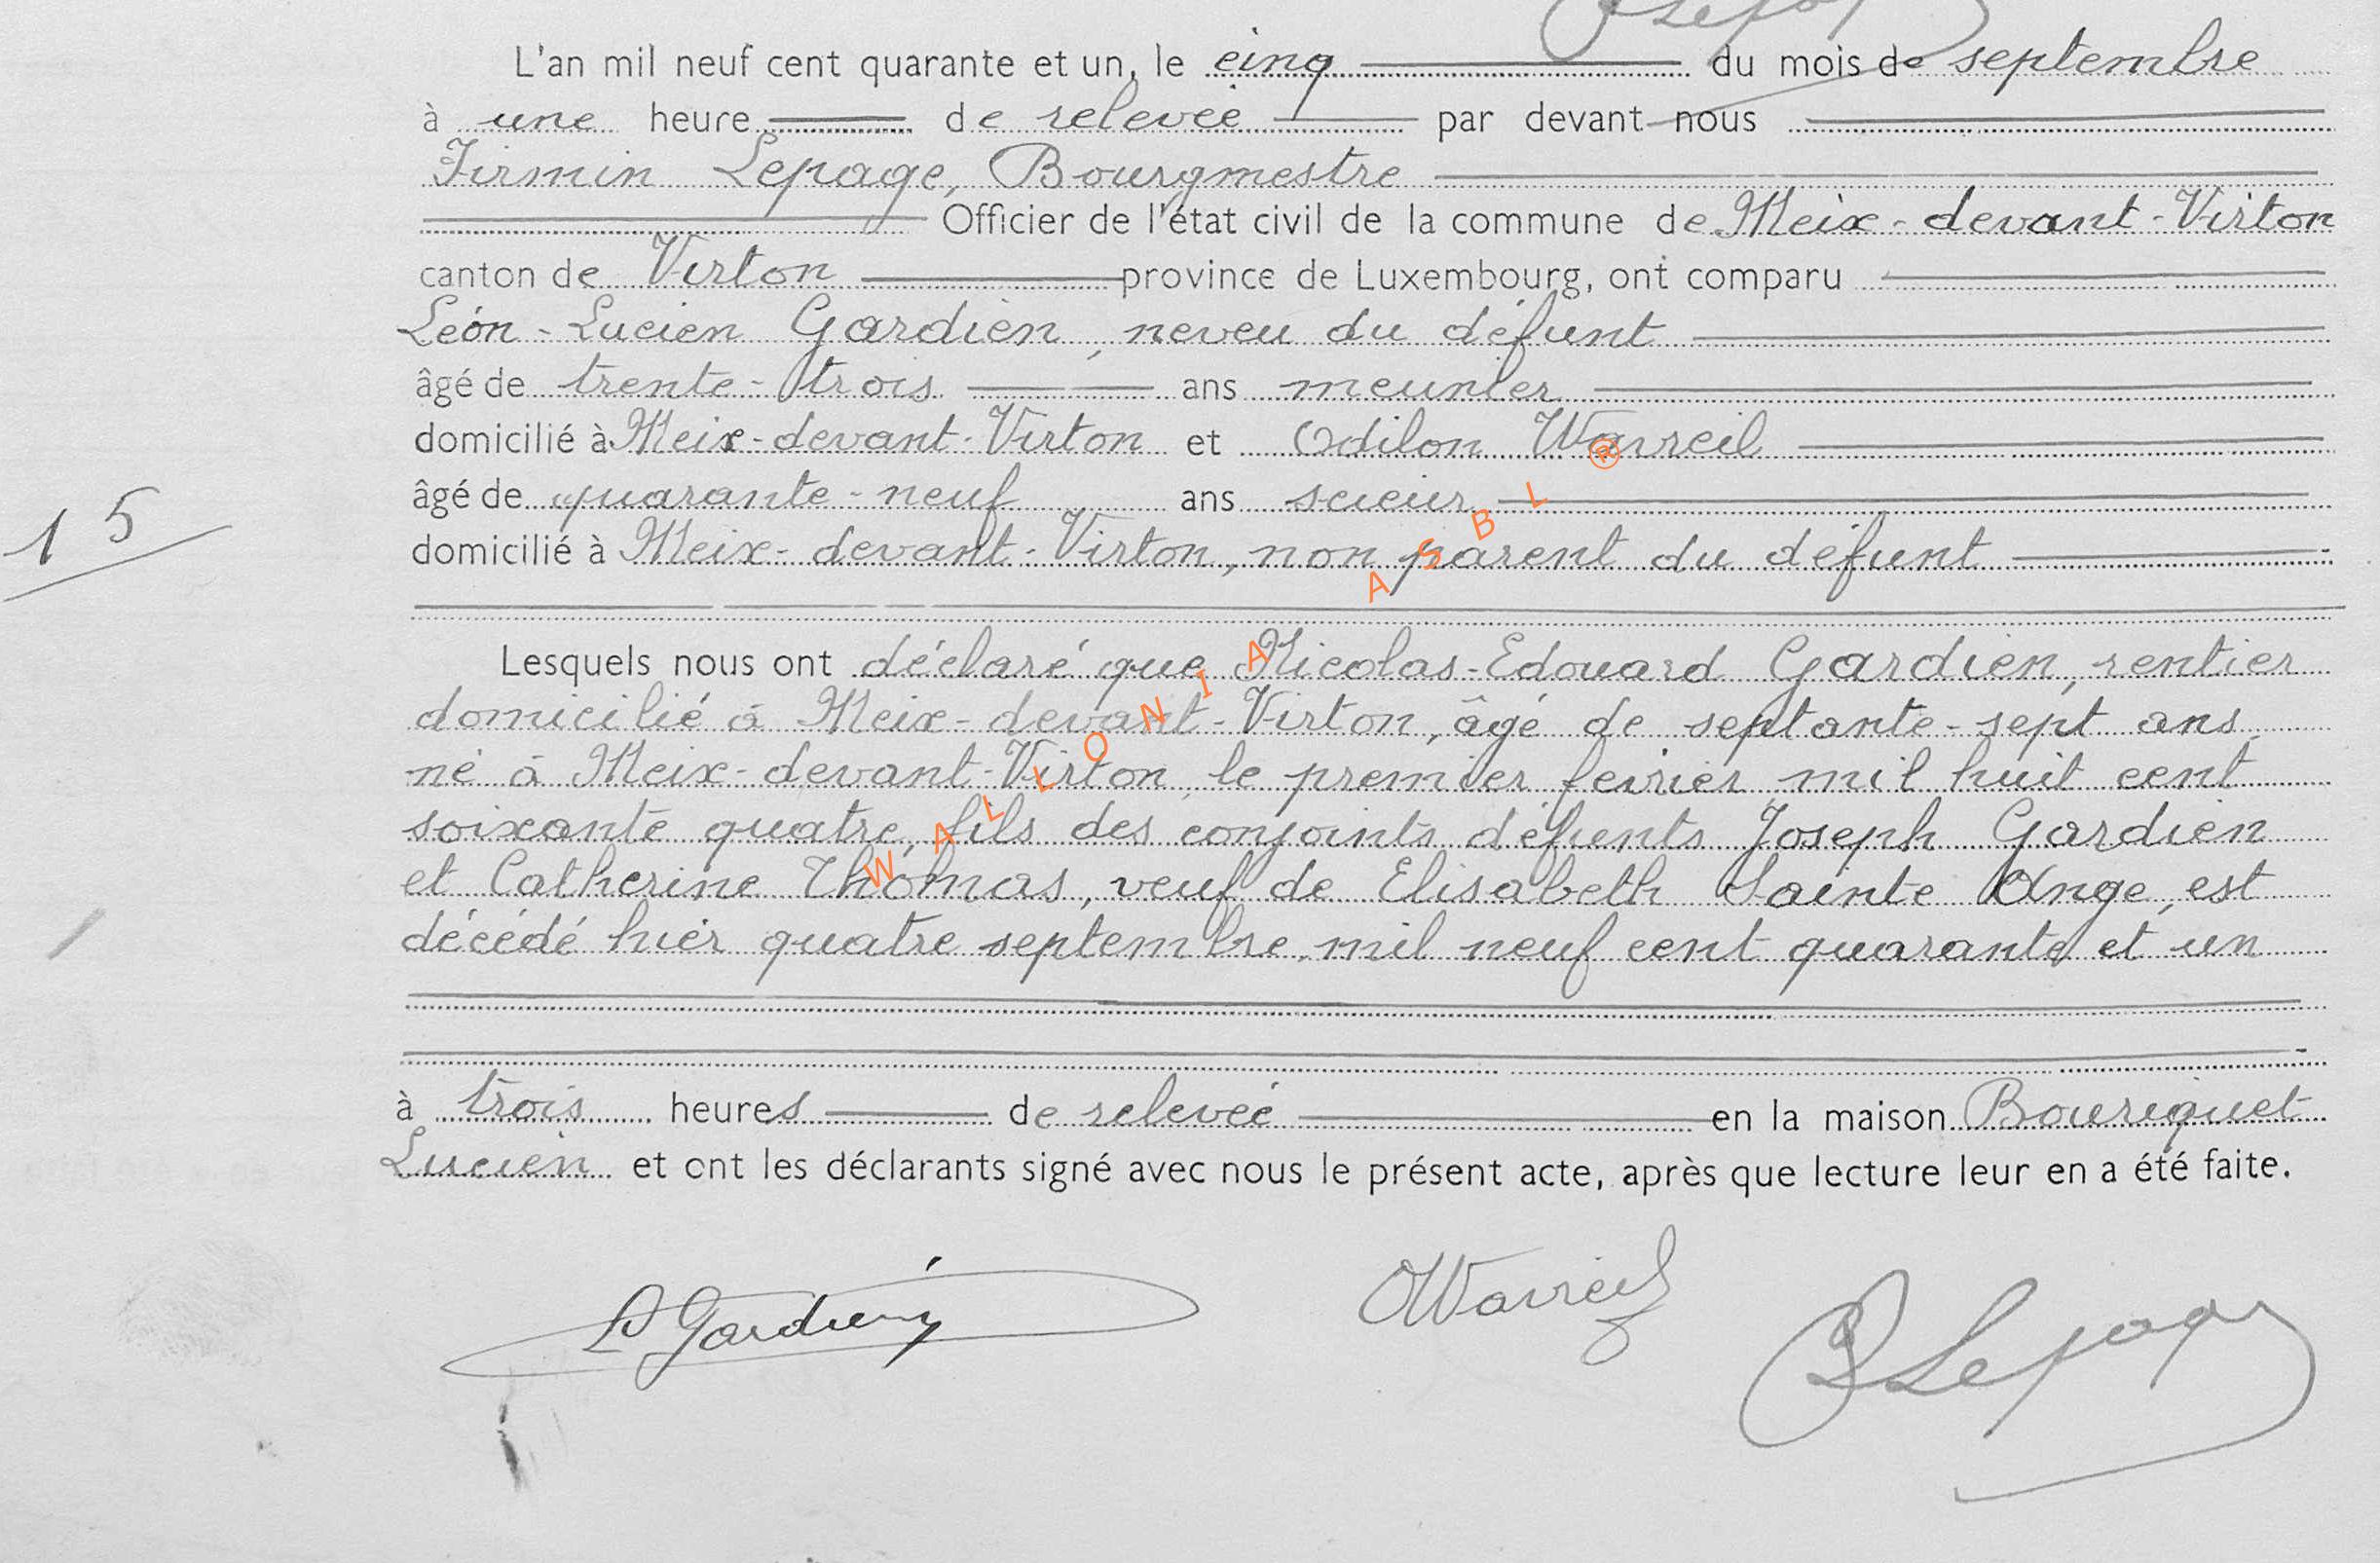 L'an mil neuf cent quarante et un, le cinq du mois de septembre
à une heure de relevée par devant nous
Firmin Lepage, Bourgmestre
Officier de l'état civil de la commune de Meix-devant-Virton
canton de Virton province de Luxembourg, ont comparu
Léon-Lucien Gardien, neveu du défunt
âgé de trente-trois ans meunier
domicilié à Meix-devant-Virton et Odilon Wavreil
âgé de quarante-neuf ans scieur
15
domicilié à Meix-devant-Virton, non parent du défunt
Lesquels nous ont déclaré que Nicolas-Edouard Gardien, rentier
domicilié à Meix-devant-Virton, âgé de septante-sept ans,
né à Meix-devant-Virton, le premier février mil huit cent
soixante quatre, fils des conjoints défunts Joseph Gardien
et Catherine Thomas, veuf de Elisabeth Sainte Ange, est
décédé hier quatre septembre, mil neuf cent quarante et un
à trois heures de relevée en la maison Bouriquet
Lucien et ont les déclarants signé avec nous le présent acte, après que lecture leur en a été faite.
L Gardien
OWavreil
Lepage
WALLONIA ASBL ®